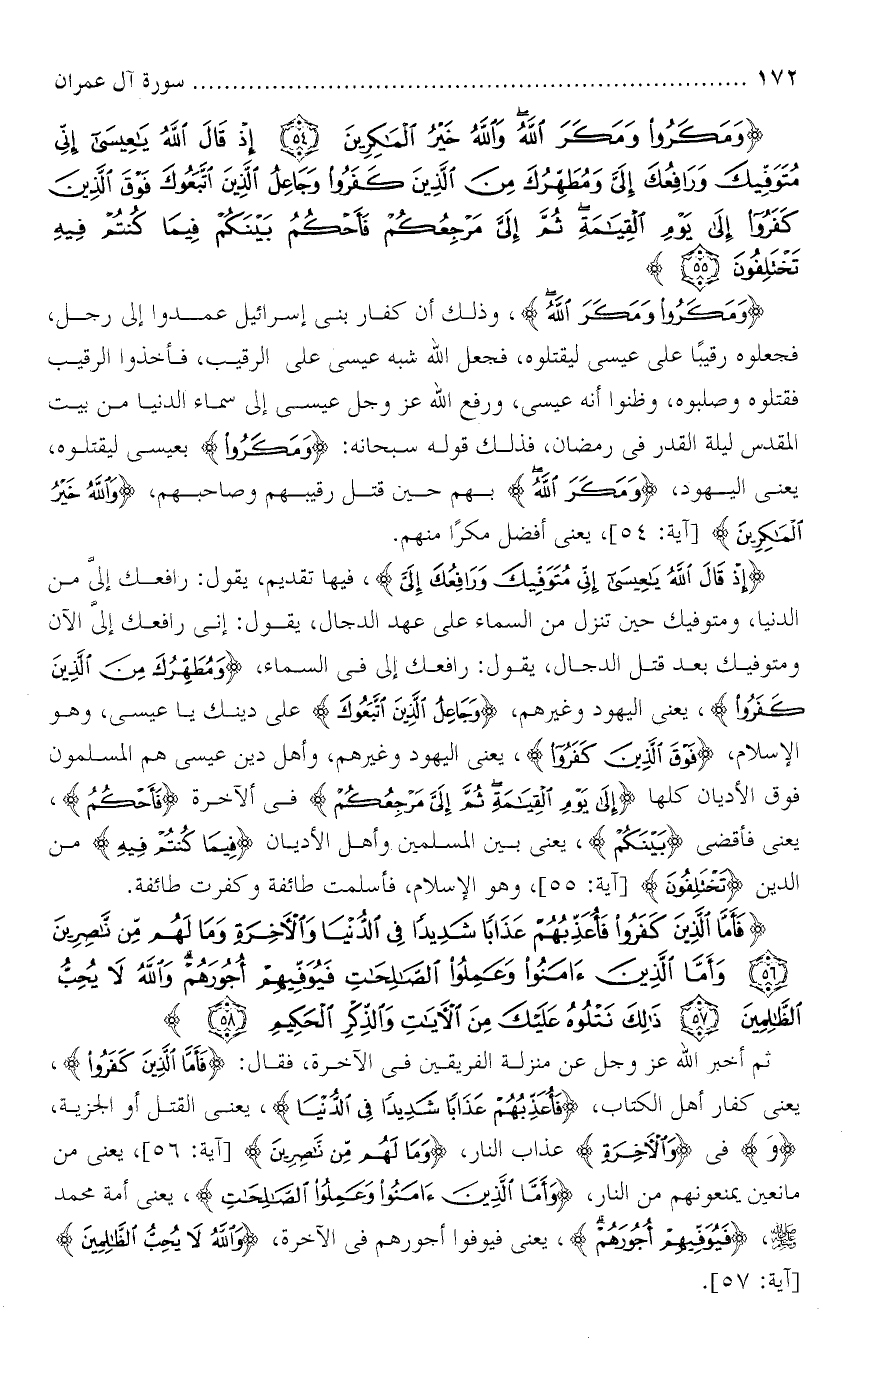 ١٧٢ ........................................................................ سورة آل عمران
﴿وَمَكَرُوا۟ وَمَكَرَ ٱللَّهُ ۖ وَٱللَّهُ خَيْرُ ٱلْمَـٰكِرِينَ ﴿٥٤﴾ إِذْ قَالَ ٱللَّهُ يَـٰعِيسَىٰٓ إِنِّى
مُتَوَفِّيكَ وَرَافِعُكَ إِلَىَّ وَمُطَهِّرُكَ مِنَ ٱلَّذِينَ كَفَرُوا۟ وَجَاعِلُ ٱلَّذِينَ ٱتَّبَعُوكَ فَوْقَ ٱلَّذِينَ
كَفَرُوٓا۟ إِلَىٰ يَوْمِ ٱلْقِيَـٰمَةِ ۖ ثُمَّ إِلَىَّ مَرْجِعُكُمْ فَأَحْكُمُ بَيْنَكُمْ فِيمَا كُنتُمْ فِيهِ
تَخْتَلِفُونَ ﴿٥٥﴾ ﴾
﴿وَمَكَرُوا۟ وَمَكَرَ ٱللَّهُ ۖ﴾، وذلك أن كفار بنى إسرائيل عمدوا إلى رجل،
فجعلوه رقيبًا على عيسى ليقتلوه، فجعل الله شبه عيسى على الرقيب، فأخذوا الرقيب
فقتلوه وصلبوه، وظنوا أنه عيسى، ورفع الله عز وجل عيسى إلى سماء الدنيا من بيت
المقدس ليلة القدر فى رمضان، فذلك قوله سبحانه: ﴿وَمَكَرُوا۟ ﴾ بعيسى ليقتلوه،
يعنى اليهود، ﴿وَمَكَرَ ٱللَّهُ ۖ﴾ بهم حين قتل رقيبهم وصاحبهم، ﴿وَٱللَّهُ خَيْرُ
ٱلْمَـٰكِرِينَ ﴾ [آية: ٥٤]، يعنى أفضل مكرًا منهم.
﴿إِذْ قَالَ ٱللَّهُ يَـٰعِيسَىٰٓ إِنِّى مُتَوَفِّيكَ وَرَافِعُكَ إِلَىَّ ﴾، فيها تقديم، يقول: رافعك إلىَّ من
الدنيا، ومتوفيك حين تنزل من السماء على عهد الدجال، يقول: إنى رافعك إلىَّ الآن
ومتوفيك بعد قتل الدجال، يقول: رافعك إلى فى السماء، ﴿وَمُطَهِّرُكَ مِنَ ٱلَّذِينَ
كَفَرُوا۟ ﴾، يعنى اليهود وغيرهم، ﴿وَجَاعِلُ ٱلَّذِينَ ٱتَّبَعُوكَ ﴾ على دينك يا عيسى، وهو
الإسلام، ﴿فَوْقَ ٱلَّذِينَ كَفَرُوٓا۟ ﴾، يعنى اليهود وغيرهم، وأهل دين عيسى هم المسلمون
فوق الأديان كلها ﴿إِلَىٰ يَوْمِ ٱلْقِيَـٰمَةِ ۖ ثُمَّ إِلَىَّ مَرْجِعُكُمْ ﴾ فى ألآخرة ﴿فَأَحْكُمُ ﴾،
يعنى فأقضى ﴿بَيْنَكُمْ ﴾، يعنى بين المسلمين وأهل الأديان ﴿فِيمَا كُنتُمْ فِيهِ ﴾ من
الدين ﴿تَخْتَلِفُونَ ﴾ [آية: ٥٥]، وهو الإسلام، فأسلمت طائفة وكفرت طائفة.
﴿فَأَمَّا ٱلَّذِينَ كَفَرُوا۟ فَأُعَذِّبُهُمْ عَذَابًا شَدِيدًا فِى ٱلدُّنْيَا وَٱلْـَٔاخِرَةِ وَمَا لَهُم مِّن نَّـٰصِرِينَ
﴿٥٦﴾ وَأَمَّا ٱلَّذِينَ ءَامَنُوا۟ وَعَمِلُوا۟ ٱلصَّـٰلِحَـٰتِ فَيُوَفِّيهِمْ أُجُورَهُمْ ۗ وَٱللَّهُ لَا يُحِبُّ
ٱلظَّـٰلِمِينَ ﴿٥٧﴾ ذَٰلِكَ نَتْلُوهُ عَلَيْكَ مِنَ ٱلْـَٔايَـٰتِ وَٱلذِّكْرِ ٱلْحَكِيمِ ﴿٥٨﴾ ﴾
ثم أخبر الله عز وجل عن منزلة الفريقين فى الآخرة، فقال: ﴿فَأَمَّا ٱلَّذِينَ كَفَرُوا۟ ﴾،
يعنى كفار أهل الكتاب، ﴿فَأُعَذِّبُهُمْ عَذَابًا شَدِيدًا فِى ٱلدُّنْيَا ﴾، يعنى القتل أو الجزية،
﴿وَ ﴾ فى ﴿وَٱلْـَٔاخِرَةِ ﴾ عذاب النار، ﴿وَمَا لَهُم مِّن نَّـٰصِرِينَ ﴾ [آية: ٥٦]، يعنى من
مانعين يمنعونهم من النار، ﴿وَأَمَّا ٱلَّذِينَ ءَامَنُوا۟ وَعَمِلُوا۟ ٱلصَّـٰلِحَـٰتِ ﴾، يعنى أمة محمد
ﷺ، ﴿فَيُوَفِّيهِمْ أُجُورَهُمْ ۗ﴾، يعنى فيوفوا أجورهم فى الآخرة، ﴿وَٱللَّهُ لَا يُحِبُّ ٱلظَّـٰلِمِينَ ﴾
[آية: ٥٧].